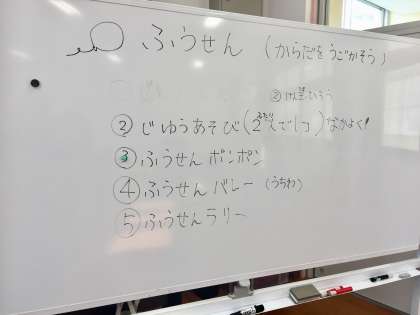 ふうせん (からだをうごかそう)
② じゆうあそび(2人で1つ)なかよく!
ふたり
③ ふうせんポンポン
④ ふうせんバレー (うちわ)
⑤ ふうせんラリー